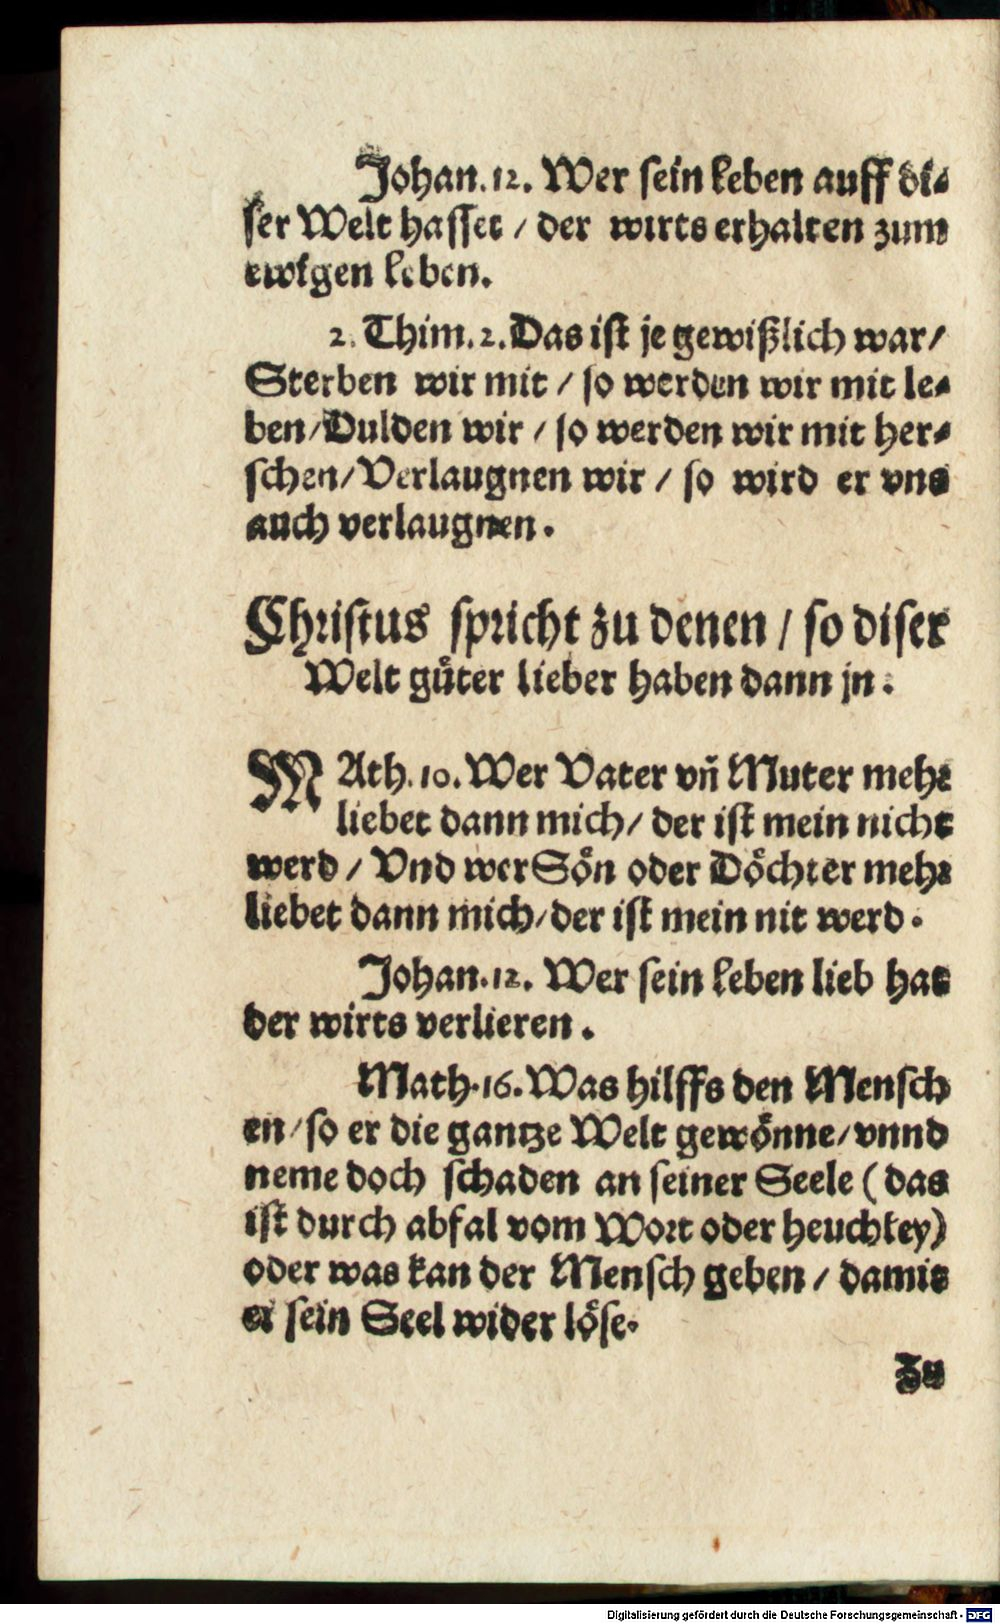 Johan. 12. Wer sein leben auff di⸗
ser Welt hasset / der wirts erhalten zum
ewigen leben.
2. Thim. 2. Das ist je gewißlich war /
Sterben wir mit / so werden wir mit le⸗
ben / Dulden wir / so werden wir mit her⸗
schen / Verlaugnen wir / so wird er vns
auch verlaugnen.
Christus spricht zu denen / so diser
Welt gůter lieber haben dann jn.
MAth. 10. Wer Vater vñ Muter mehr
liebet dann mich / der ist mein nicht
werd / Vnd wer Sön oder Döchter mehr
liebet dann mich / der ist mein nit werd.
Johan. 12. Wer sein leben lieb hat
der wirts verlieren.
Math. 16. Was hilffs den Mensch
en / so er die gantze Welt gewönne / vnnd
neme doch schaden an seiner Seele (das
ist durch abfal vom Wort oder heuchley)
oder was kan der Mensch geben / damit
er sein Seel wider löse.
Zu
Digitalisierung gefördert durch die Deutsche Forschungsgemeinschaft - DFG